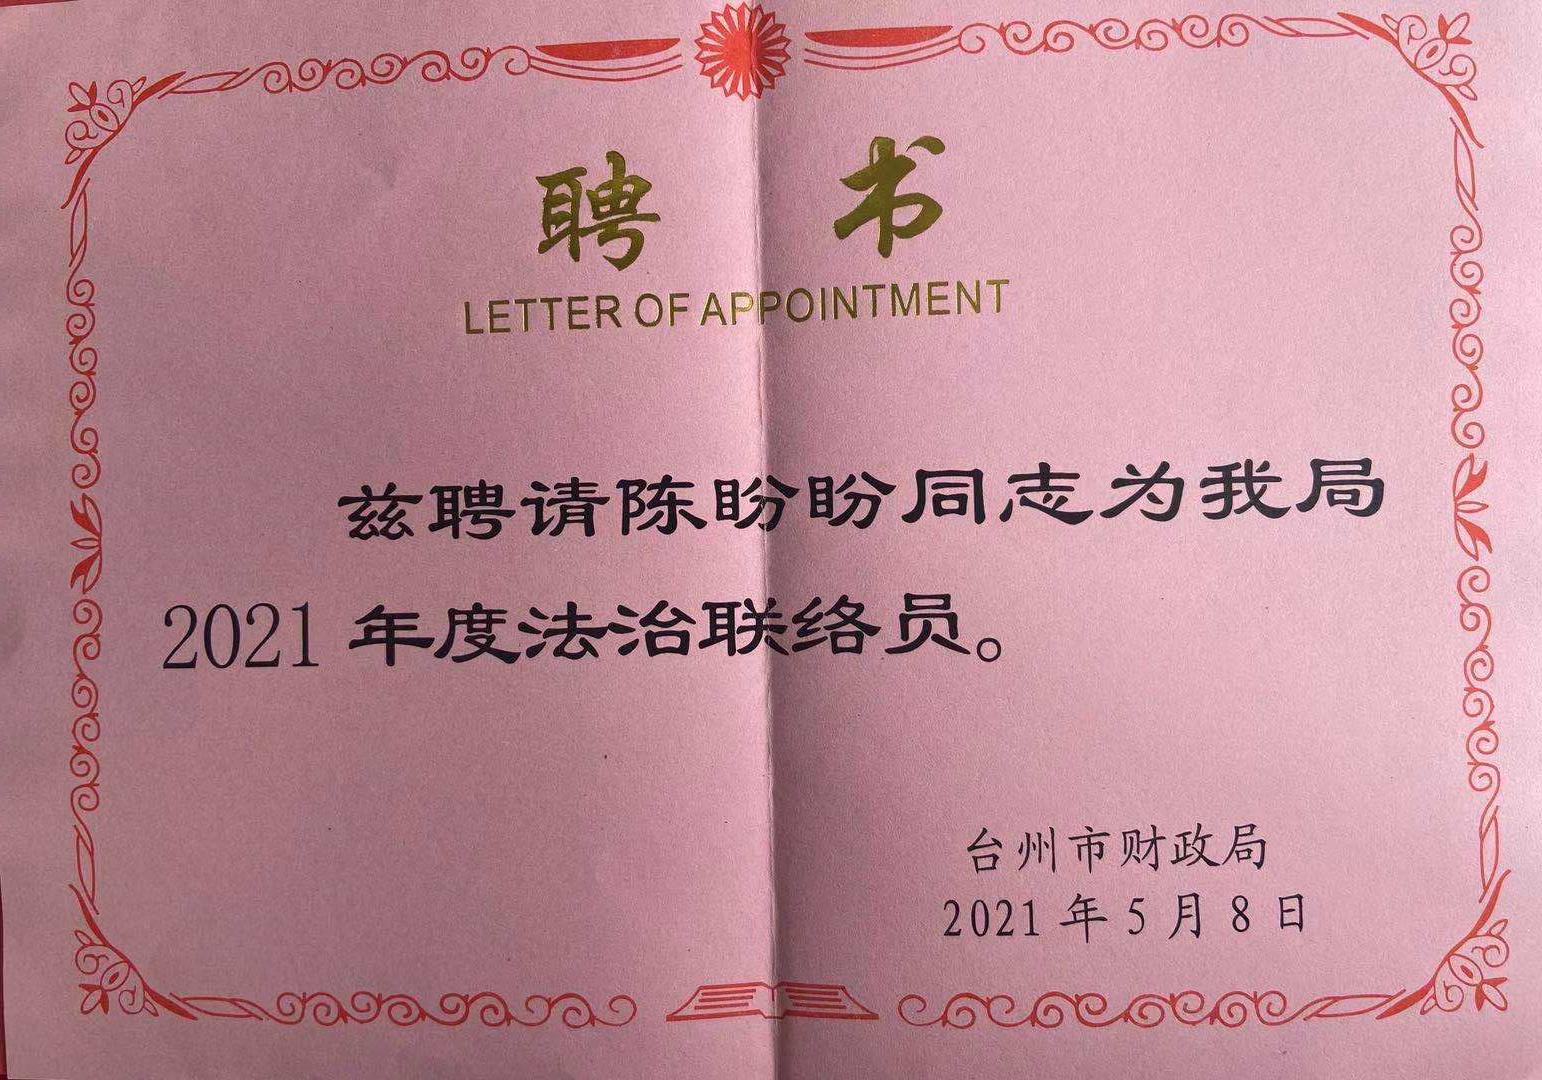 聘书
LETTER OF APPOINTMENT
兹聘请陈盼盼同志为我局
2021年度法治联络员。
台州市财政局
2021年5月8日